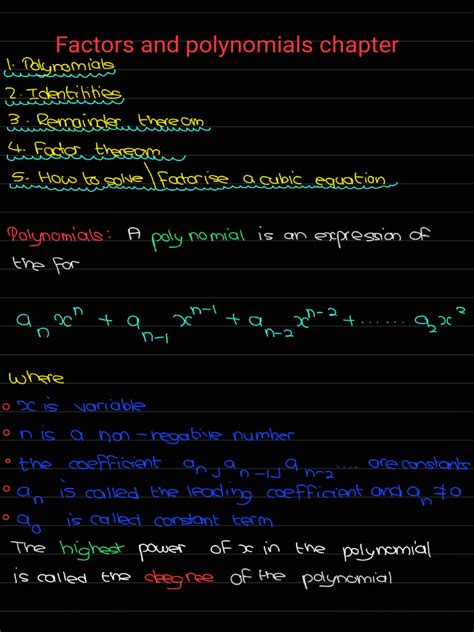 Factors and polynomials chapter
1. Polynomials
2. Identitities
3. Remainder thereom
4. Factor thereom
5. How to solve \ Factorise a cubic equation
Polynomials: A polynomial is an expression of
the for
aₙxⁿ + aₙ₋₁ xⁿ⁻¹ + aₙ₋₂ xⁿ⁻² + ...... a₂x²
where
• x is variable
• n is a non-negative number
• the coefficient aₙ, aₙ₋₁, aₙ₋₂ .... are constants
• aₙ is called the leading coefficient and aₙ ≠ 0
• a₀ is called constant term
The highest power of x in the polynomial
is called the degree of the polynomial